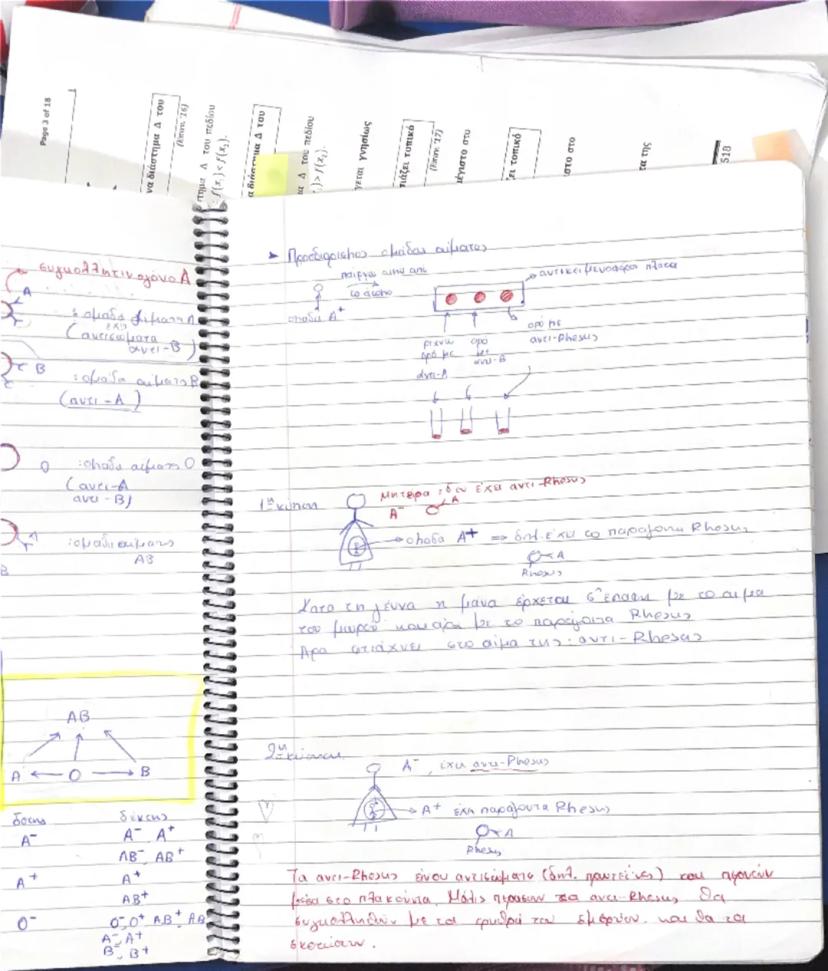 Page 3 of 18
να διάστημα Δ του
(Επαν. '16)
στημα Δ του πεδίου
f(x₁) < f(x₂).
α διάστημα Δ του
α Δ του πεδίου
) > f(x₂).
γεται γνησίως
ιάζει τοπικό
(Επαν. '17)
μέγιστο στο
ει τοπικό
στο στο
τα της
518
συγκολλητινογόνο Α
A
: ομάδα αίματος A
(έχει
αντισώματα
αντι-B)
B
: ομάδα αίματος B
(αντι-A)
O : ομάδα αίματος O
(αντι-A
αντι-B)
: ομάδα αίματος
AB
B
AB
A ← O → B
δότης δέκτης
A⁻ A⁻, A⁺
AB⁻, AB⁺
A⁺ A⁺
AB⁺
O⁻ O⁻, O⁺ AB⁺, AB
A⁻, A⁺
B⁻, B⁺
➤ Προσδιορισμός ομάδας αίματος
παίρνω αίμα από
το άτομο
ομάδα A⁺
αντικειμενοφόρο πλάκα
ρίχνω
ορό με
αντι-A
ορό
με
αντι-B
ορό με
αντι-Rhesus
1η κύηση
Μητέρα : δεν έχει αντι-Rhesus
A⁻ A
ομάδα A⁺ ⇒ δηλ. έχει το παράγοντα Rhesus
A
Rhesus
Κατά τη γέννα η μάνα έρχεται σ' επαφή με το αίμα
του μωρού και άρα με το παράγοντα Rhesus
Άρα φτιάχνει στο αίμα της : αντι-Rhesus
2η κύηση
A⁻, έχει αντι-Rhesus
A⁺ έχει παράγοντα Rhesus
A
Rhesus
Τα αντι-Rhesus είναι αντισώματα (δηλ. πρωτεΐνες) και περνούν
μέσα στο πλακούντα. Μόλις περάσουν τα αντι-Rhesus θα
συγκολληθούν με τα ερυθρά του εμβρύου και θα τα
σκοτώσουν.